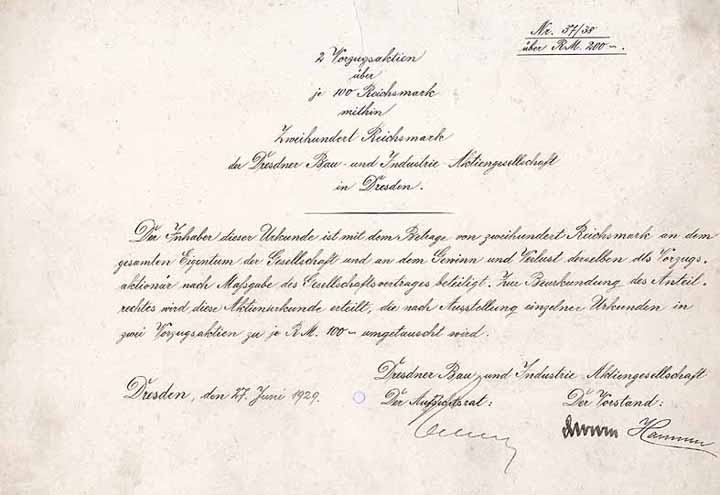 Nr. 37/38
über RM. 200 ~.
2 Vorzugsaktien
über
je 100 Reichsmark
mithin
Zweihundert Reichsmark
der Dresdner Bau- und Industrie-Aktiengesellschaft
in Dresden.
Der Inhaber dieser Urkunde ist mit dem Betrage von zweihundert Reichsmark an dem
gesamten Eigentum der Gesellschaft und an dem Gewinn und Verlust derselben als Vorzugs-
aktionär nach Maßgabe des Gesellschaftsvertrages beteiligt. Zur Beurkundung des Anteil-
rechtes wird diese Aktienurkunde erteilt, die nach Ausstellung einzelner Urkunden in
zwei Vorzugsaktien zu je RM. 100 ~ umgetauscht wird.
Dresdner Bau- und Industrie-Aktiengesellschaft
Dresden, den 27. Juni 1929.
Der Aufsichtsrat: Der Vorstand: